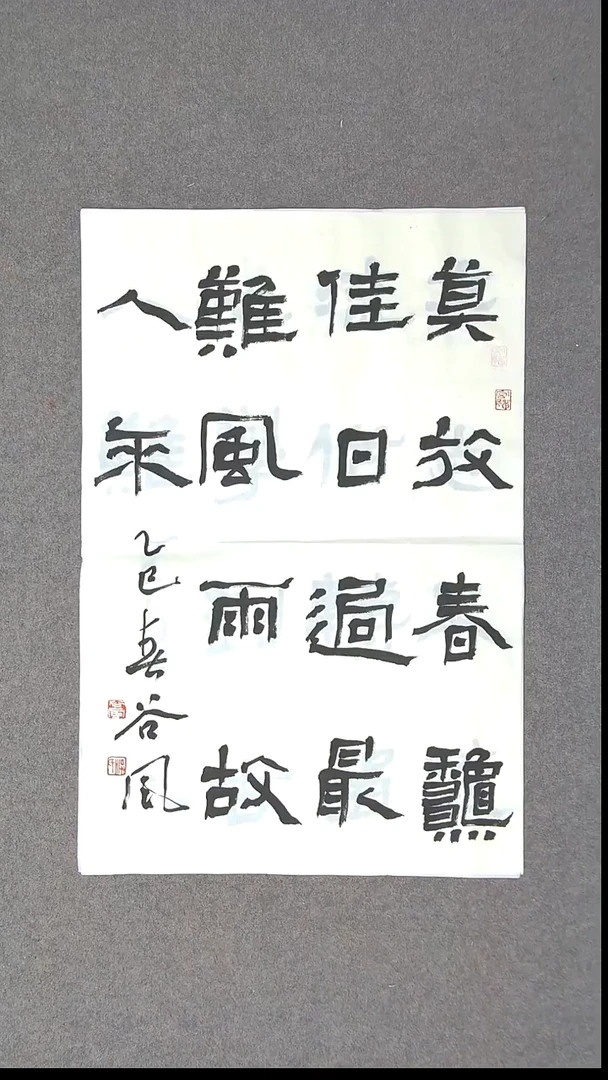 莫放春龝
佳日過最
難風雨故
人来
乙巳春谷风